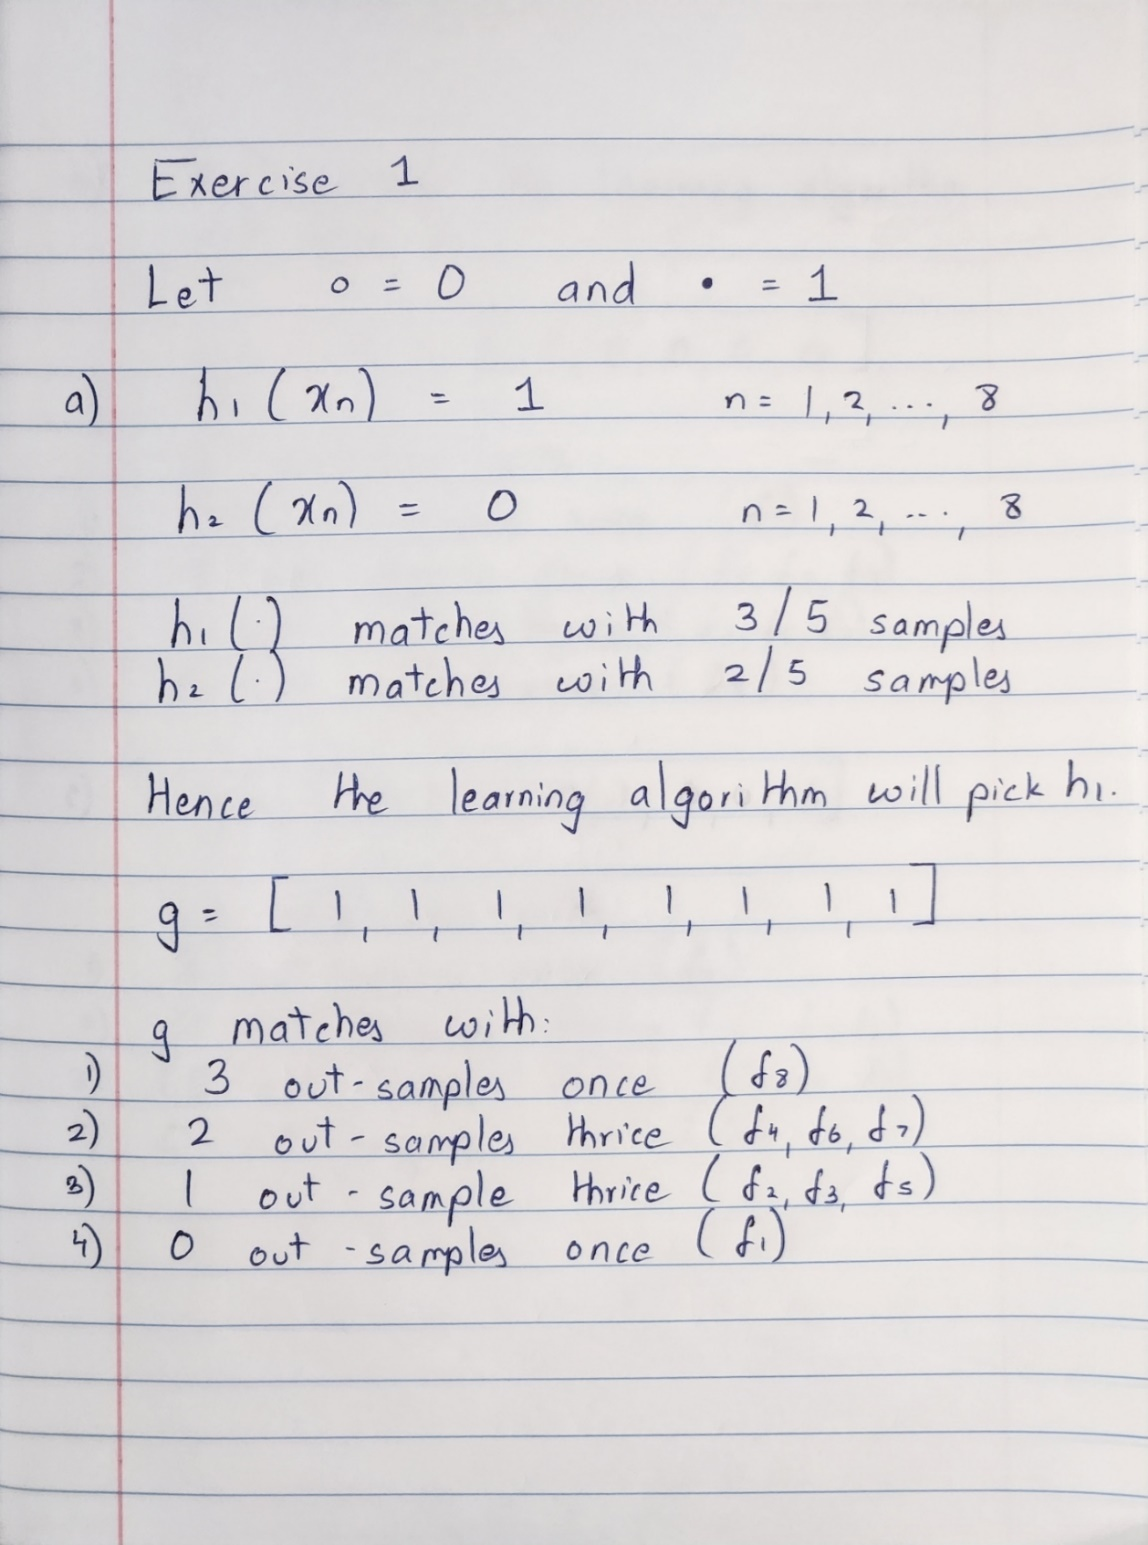 Exercise 1
Let ○ = 0 and • = 1
a) h₁(xn) = 1 n = 1, 2, ..., 8
h₂(xn) = 0 n = 1, 2, ..., 8
h₁(·) matches with 3/5 samples
h₂(·) matches with 2/5 samples
Hence the learning algorithm will pick h₁.
g = [1, 1, 1, 1, 1, 1, 1, 1]
g matches with:
1) 3 out-samples once (f₈)
2) 2 out-samples thrice (f₄, f₆, f₇)
3) 1 out-sample thrice (f₂, f₃, f₅)
4) 0 out-samples once (f₁)